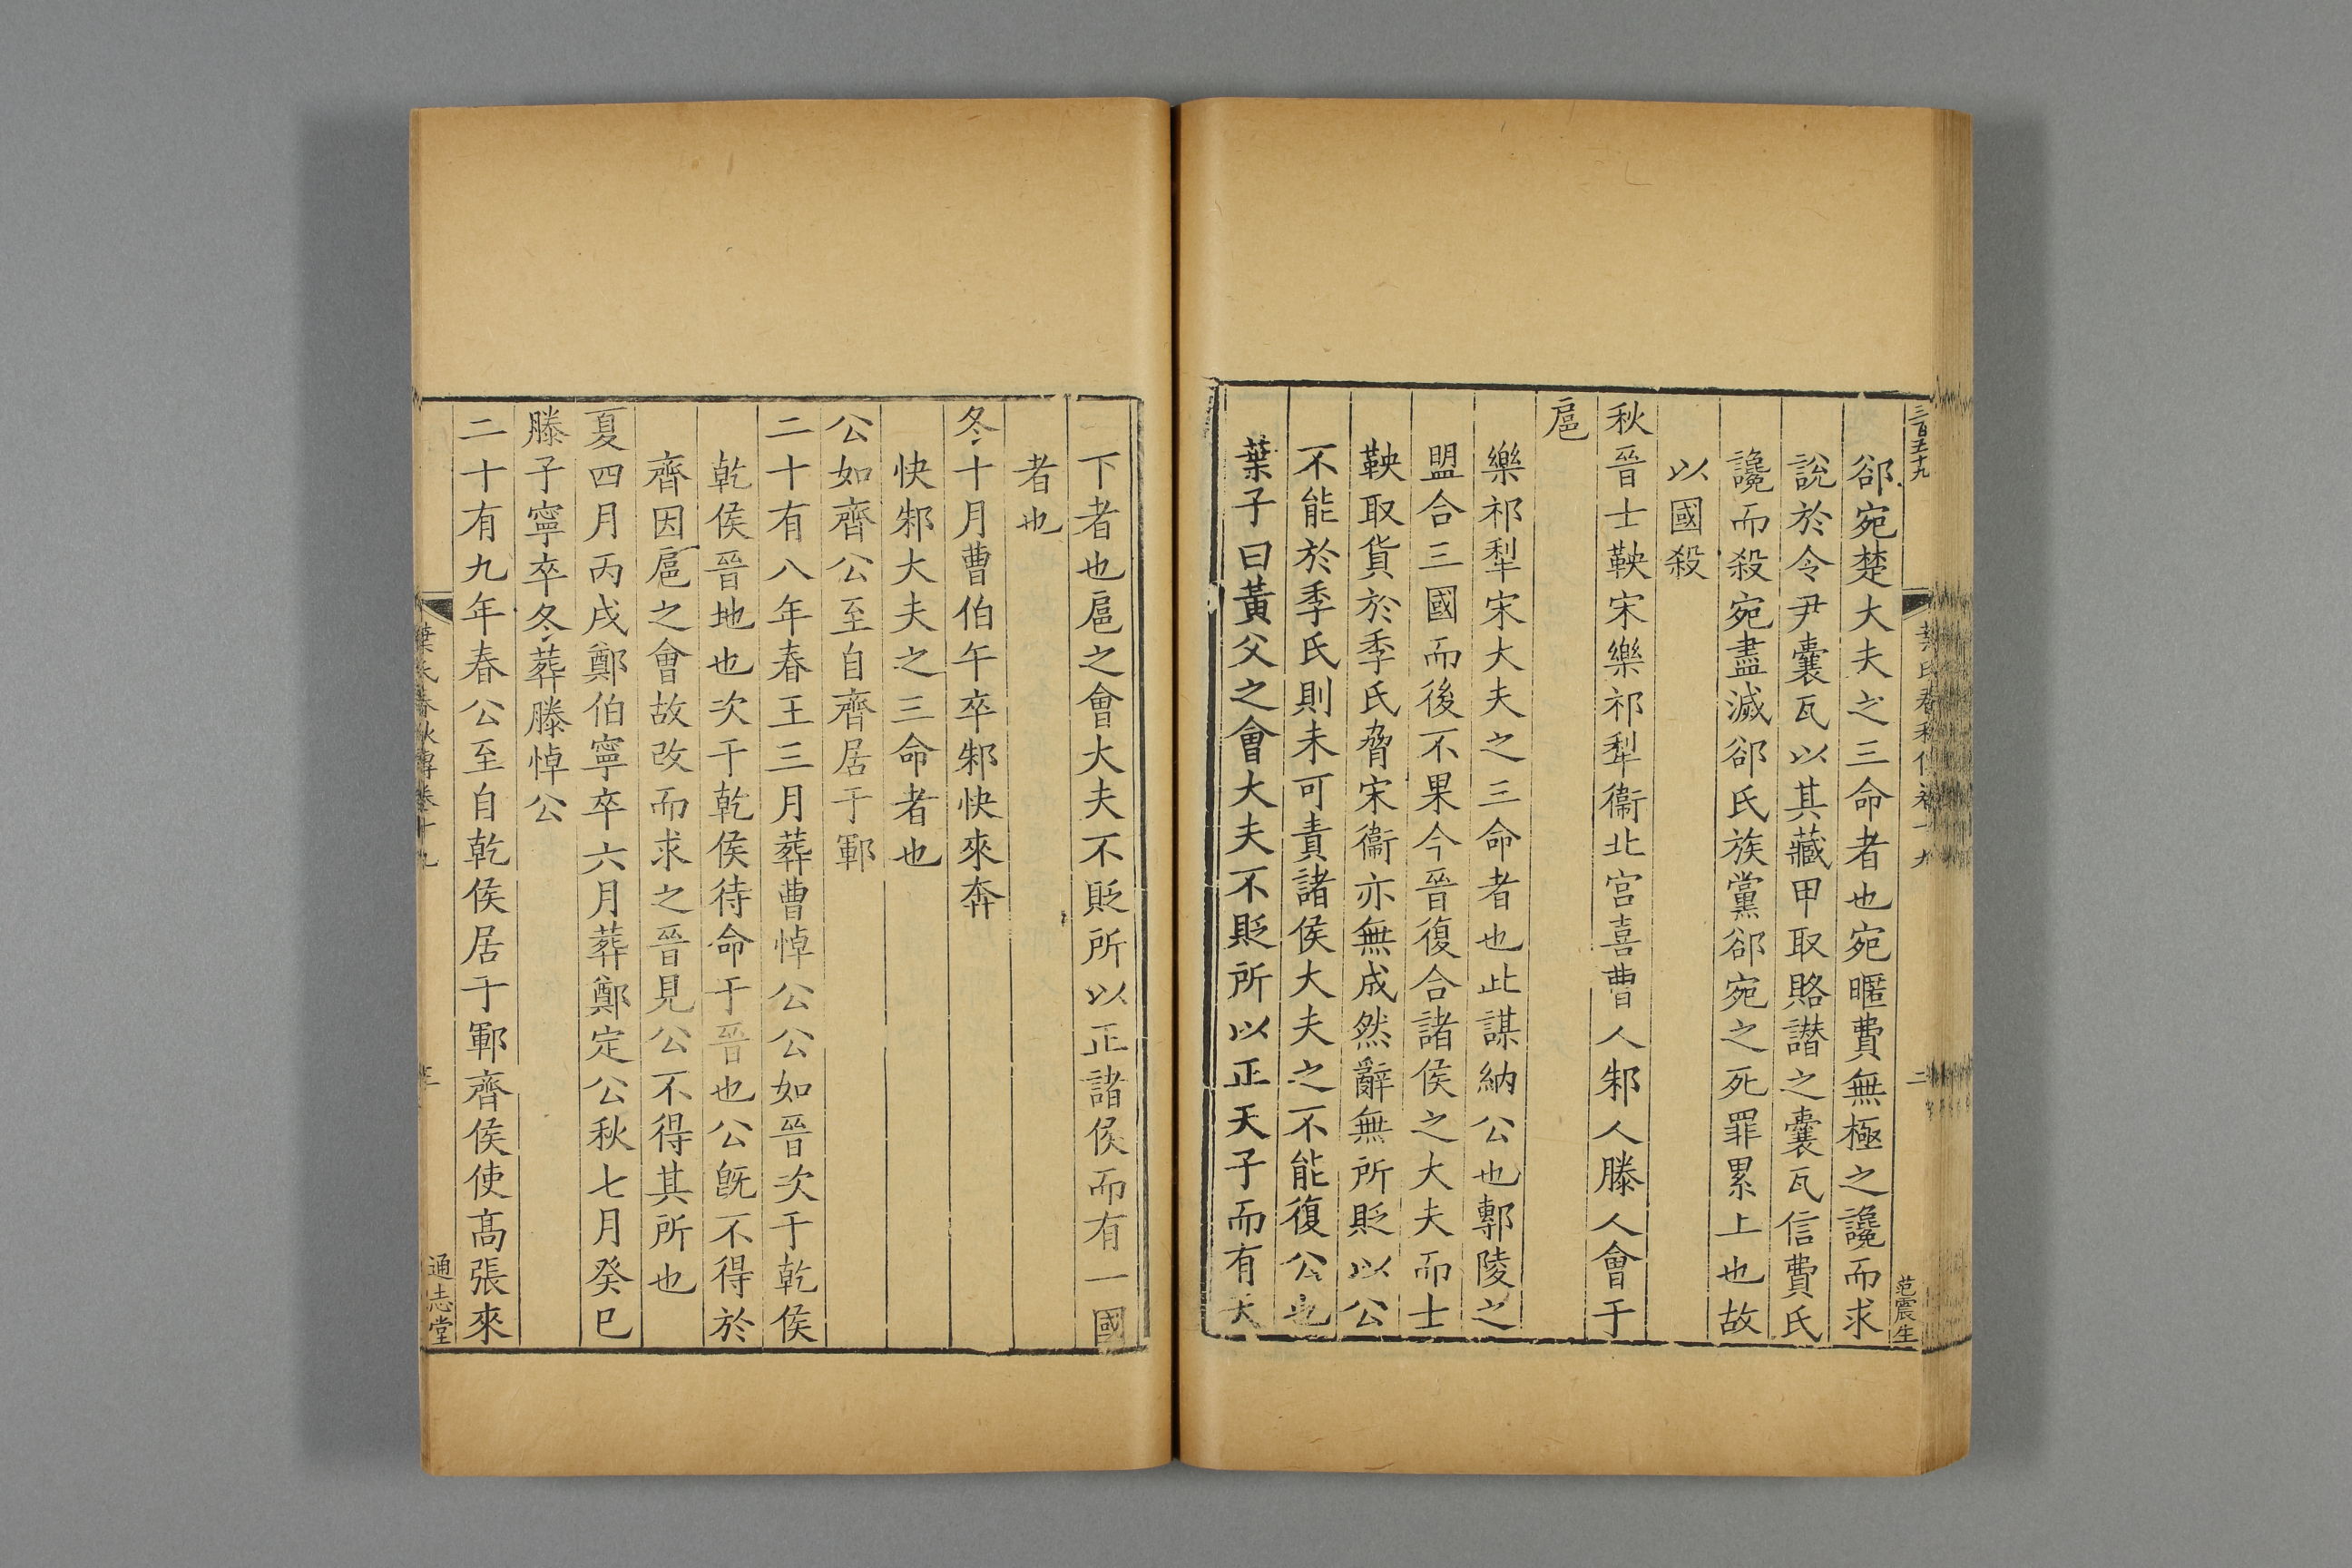 三百五十九
郤宛楚大夫之三命者也宛暱費無極之讒而求
說於令尹囊瓦以其藏甲取賂譖之囊瓦信費氏
讒而殺宛盡滅郤氏族黨郤宛之死罪累上也故
以國殺
秋晉士鞅宋樂祁犁衞北宮喜曹人邾人滕人會于
扈
樂祁犁宋大夫之三命者也此謀納公也鄟陵之
盟合三國而後不果今晉復合諸侯之大夫而士
鞅取貨於季氏脅宋衞亦無成然辭無所貶以公
不能於季氏則未可責諸侯大夫之不能復公也
葉子曰黃父之會大夫不貶所以正天子而有天
范震生
下者也扈之會大夫不貶所以正諸侯而有一國
者也
冬十月曹伯午卒邾快來奔
快邾大夫之三命者也
公如齊公至自齊居于鄆
二十有八年春王三月葬曹悼公公如晉次于乾侯
乾侯晉地也次于乾侯待命于晉也公旣不得於
齊因扈之會故改而求之晉見公不得其所也
夏四月丙戌鄭伯寧卒六月葬鄭定公秋七月癸巳
滕子寧卒冬葬滕悼公
二十有九年春公至自乾侯居于鄆齊侯使高張來
葉氏春秋傳卷十九
通志堂